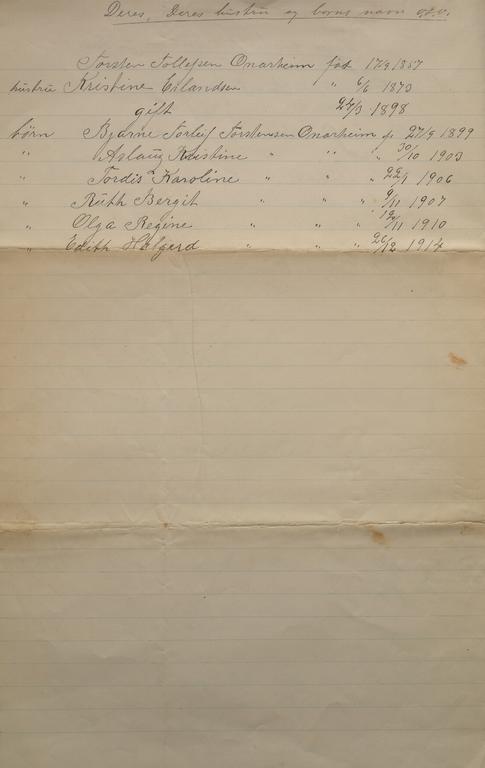 Deres, Deres hustru og børns navn o.s.v.
Torsten Tollefsen Onarheim fød 17/9 1857
hustru Kristine Erlandsen " 6/6 1873
gift 27/3 1898
börn Bjarne Torleif Torstensen Onarheim f. 27/9 1899
" Aslaug Kristine " " " 30/10 1903
" Tordis Karoline " " " 22/1 1906
" Ruth Bergit " " " 9/11 1907
" Olga Regine " " " 12/11 1910
" Edith Holgerd " " " 26/12 1914